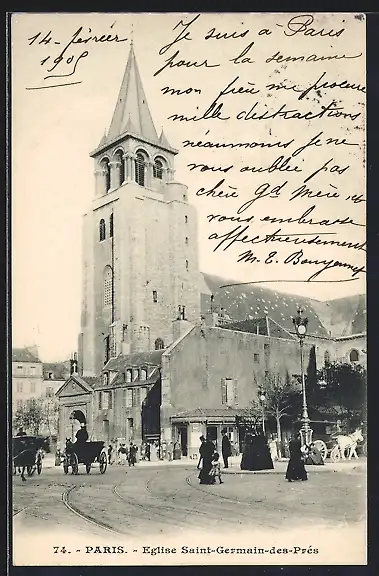 14 - février
1905
Je suis à Paris
pour la semaine
mon frère me procure
mille distractions
néanmoins je ne
vous oublie pas
chère gd. mère et
vous embrasse
affectueusement
M. E.
74. - PARIS. - Eglise Saint-Germain-des-Prés